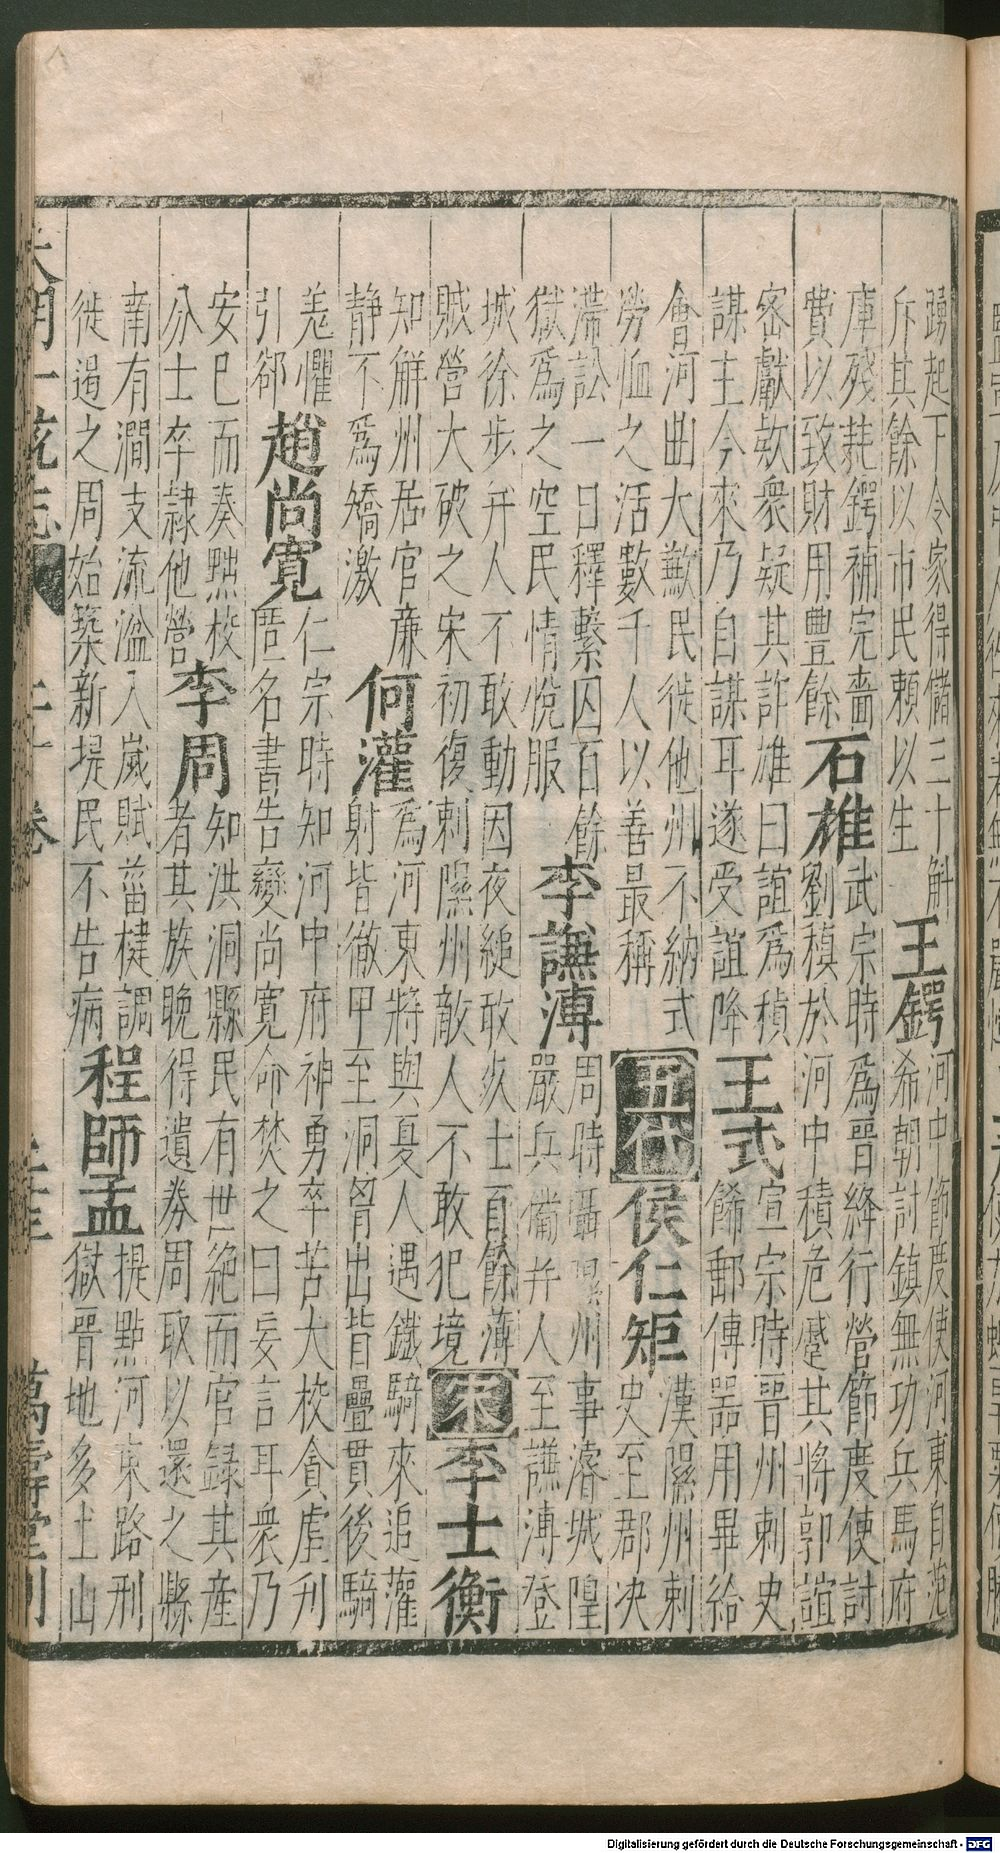 踴起下令家得儲三十斛
斥其餘以市民賴以生
王鍔
河中節度使河東自范
希朝討鎮無功兵馬府
庫殘耗鍔補完嗇
費以致財用豐餘
石雄
武宗時為晉絳行營節度使討
劉稹於河中積危蹙其將郭誼
密獻款衆疑其詐雄曰誼為稹
謀主今來乃自謀耳遂受誼降
王式
宣宗時晉州刺史
餙郵傳器用畢給
會河曲大歉民徙他州不納式
勞恤之活數千人以善最稱
五代
侯仁矩
漢隰州刺
史至郡决
滯訟一日釋繫囚百餘
獄為之空民情悅服
李謙溥
周時攝隰州事濬城隍
嚴兵備并人至謙溥登
城徐步并人不敢動因夜縋敢死士百餘薄
賊營大破之宋初復刺隰州敵人不敢犯境
宋
李士衡
知解州居官亷
静不為矯激
何灌
為河東將與夏人遇鐵騎來追灌
射皆徹甲至洞胷出背疊貫後騎
羗懼
引郤
趙尚寛
仁宗時知河中府神勇卒苦大校貪虐刋
匿名書告變尚寛命焚之曰妄言耳衆乃
安巳而奏黜校
分士卒隷他營
李周
知洪洞縣民有世絶而官録其産
者其族晚得遺券周取以還之縣
南有澗支流溢入嵗賦菑楗調
徙遏之周始築新堤民不告病
程師孟
提點河東路刑
獄晋地多土山
大明一統志
二十卷
二十五
萬壽堂刊
Digitalisierung gefördert durch die Deutsche Forschungsgemeinschaft - DFG